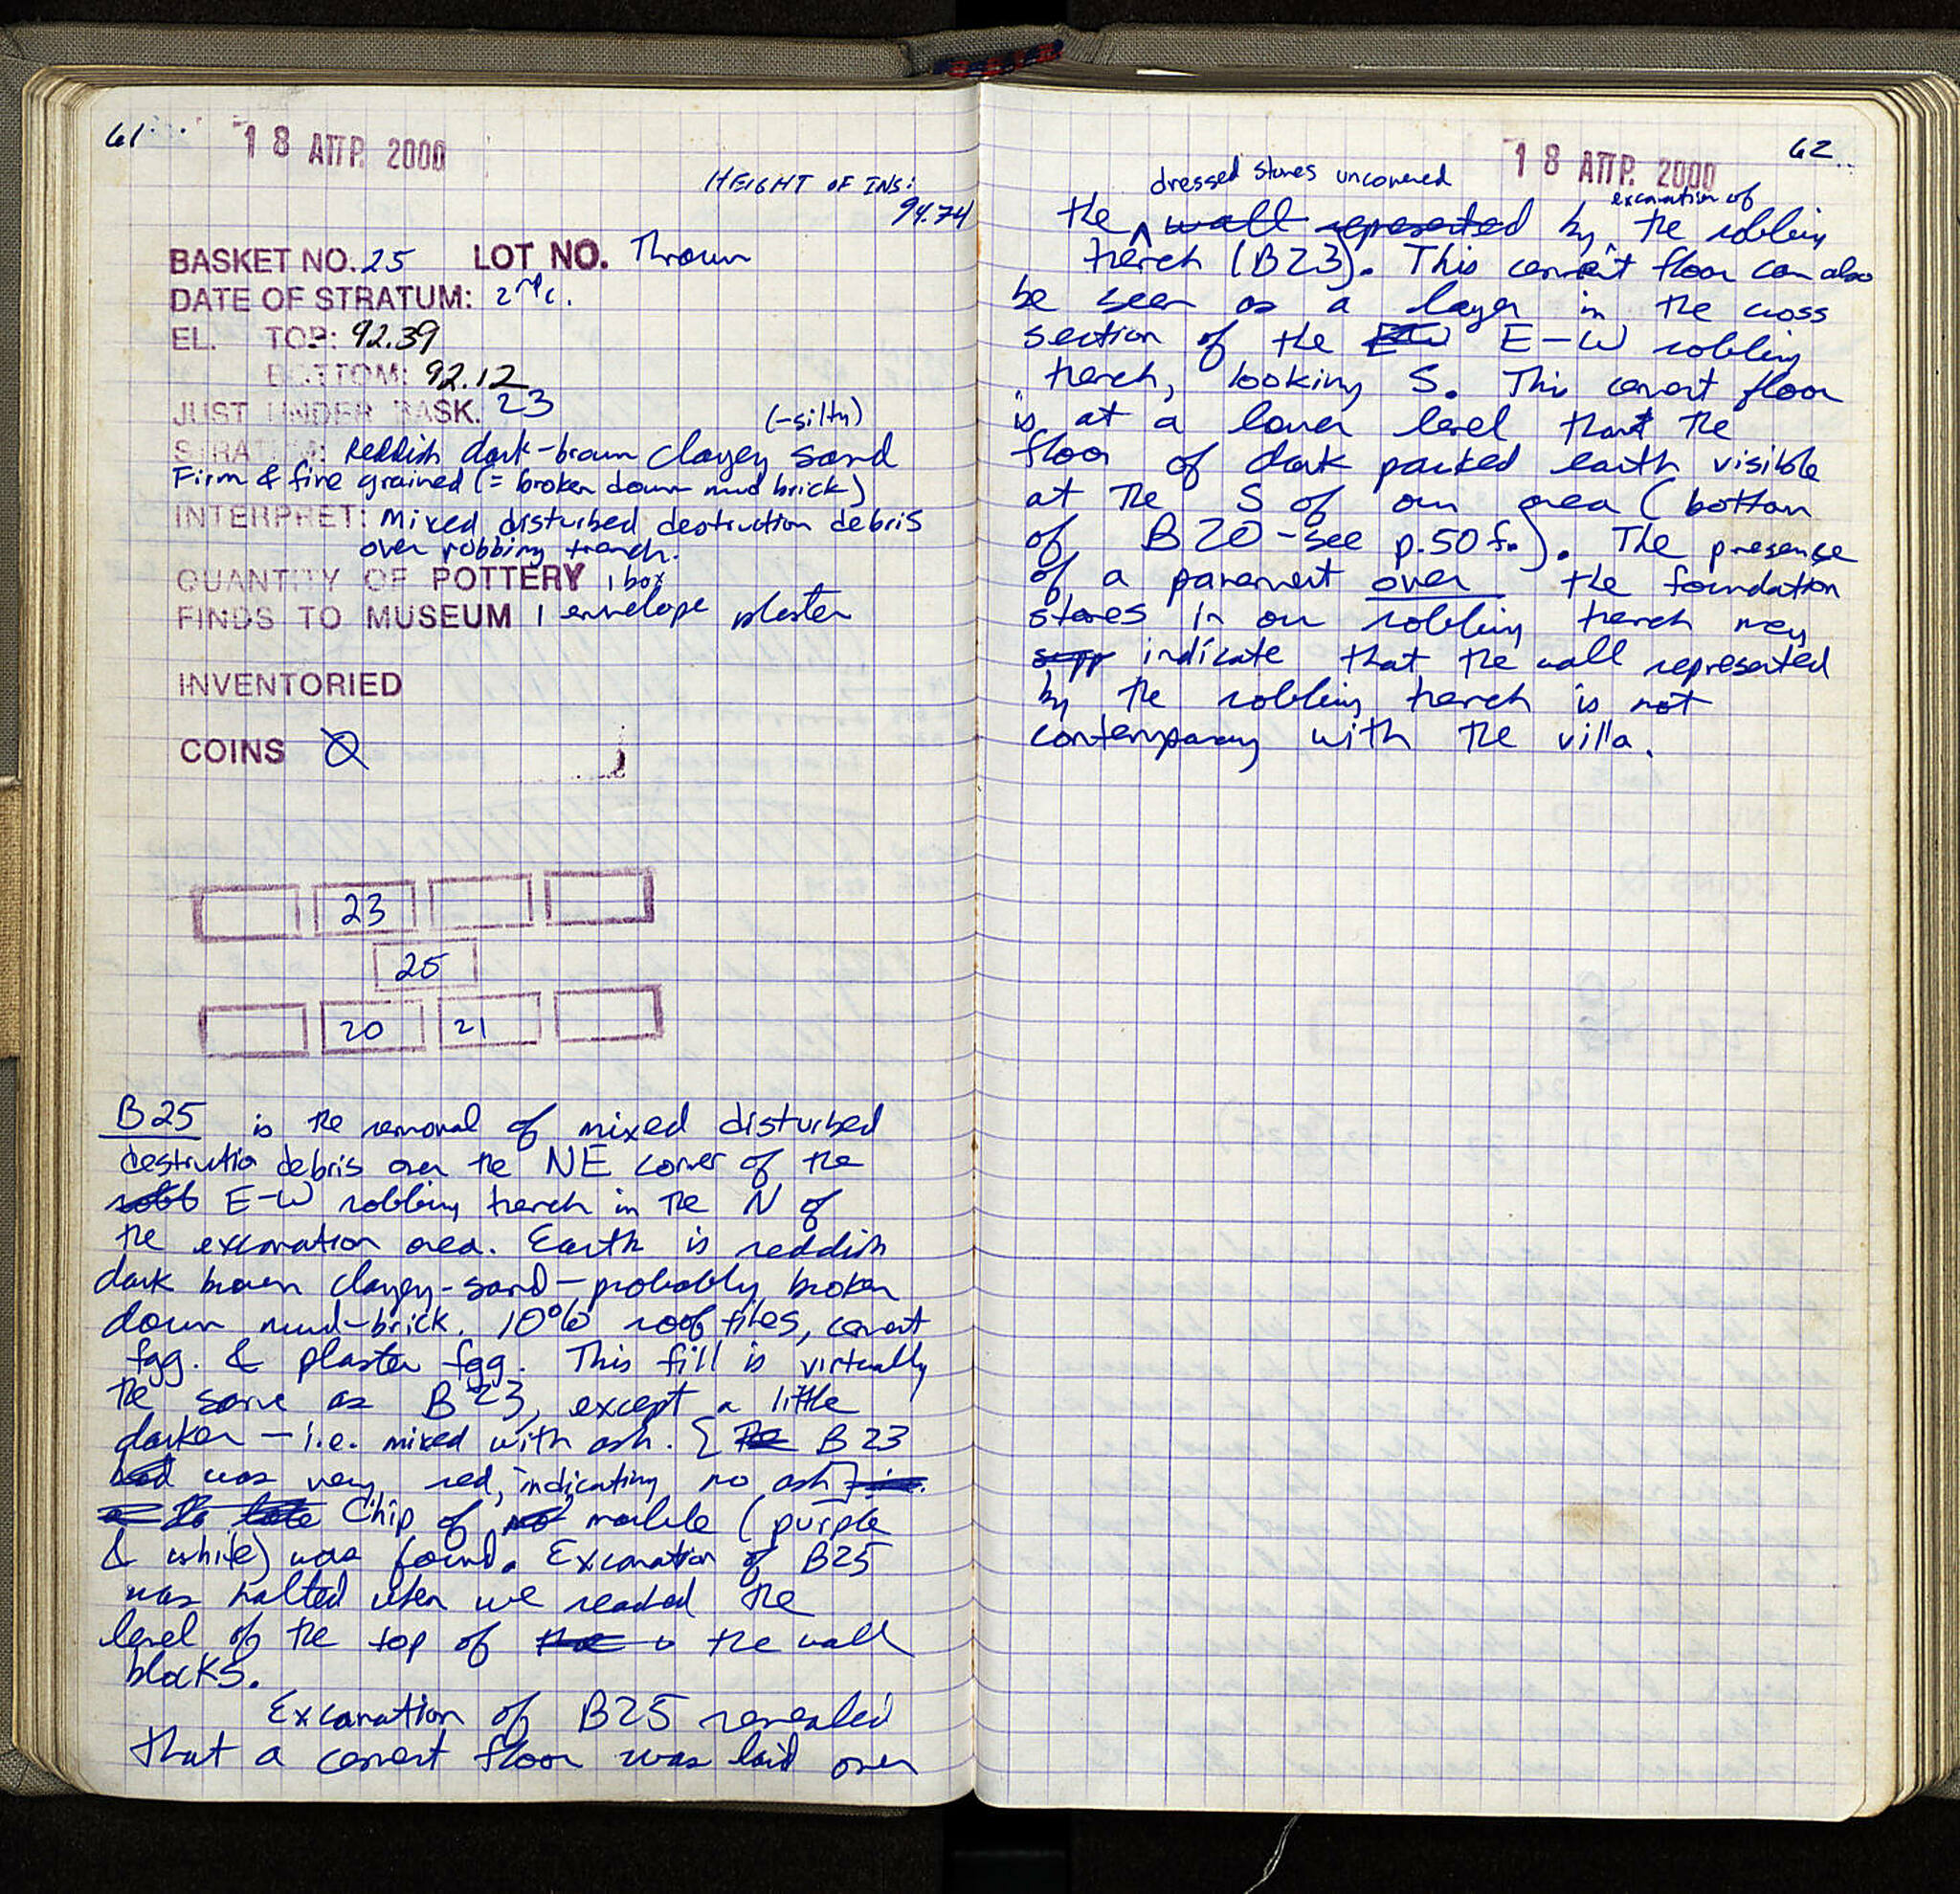 61
18 ΑΠΡ. 2000
HEIGHT OF INS:
94.74
BASKET NO. 25 LOT NO. Thrown
DATE OF STRATUM: 2nd c.
EL. TOP: 92.39
BOTTOM: 92.12
JUST UNDER BASK. 23
(-silty)
STRATUM: Reddish dark-brown clayey sand
Firm & fine grained (= broken down mud brick)
INTERPRET: Mixed disturbed destruction debris
over robbing trench.
QUANTITY OF POTTERY 1 box
FINDS TO MUSEUM 1 envelope plaster
INVENTORIED
COINS
23
25
20 21
B25 is the removal of mixed disturbed
destruction debris over the NE corner of the
robb E-W robbing trench in the N of
the excavation area. Earth is reddish
dark brown clayey-sand - probably broken
down mud-brick. 10% roof tiles, cement
fgg. & plaster fgg. This fill is virtually
the same as B23, except a little
darker - i.e. mixed with ash. [The B23
had was very red, indicating no ash]
Chip of marble (purple
& white) was found. Excavation of B25
was halted when we reached the
level of the top of the wall
blocks.
Excavation of B25 revealed
that a cement floor was laid over
62
18 ΑΠΡ. 2000
dressed stones uncovered
excavation of
the wall represented by the robbing
trench (B23). This cement floor can also
be seen as a layer in the cross
section of the EW E-W robbing
trench, looking S. This cement floor
is at a lower level than the
floor of dark packed earth visible
at the S of our area (bottom
of B20 - see p.50 f.). The presence
of a pavement over the foundation
stones in our robbing trench may
supp indicate that the wall represented
by the robbing trench is not
contemporary with the villa.